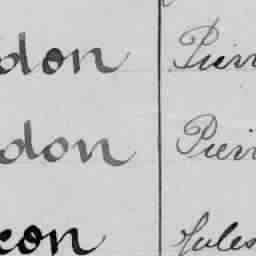 don Pierr
don Pierr
con Jules